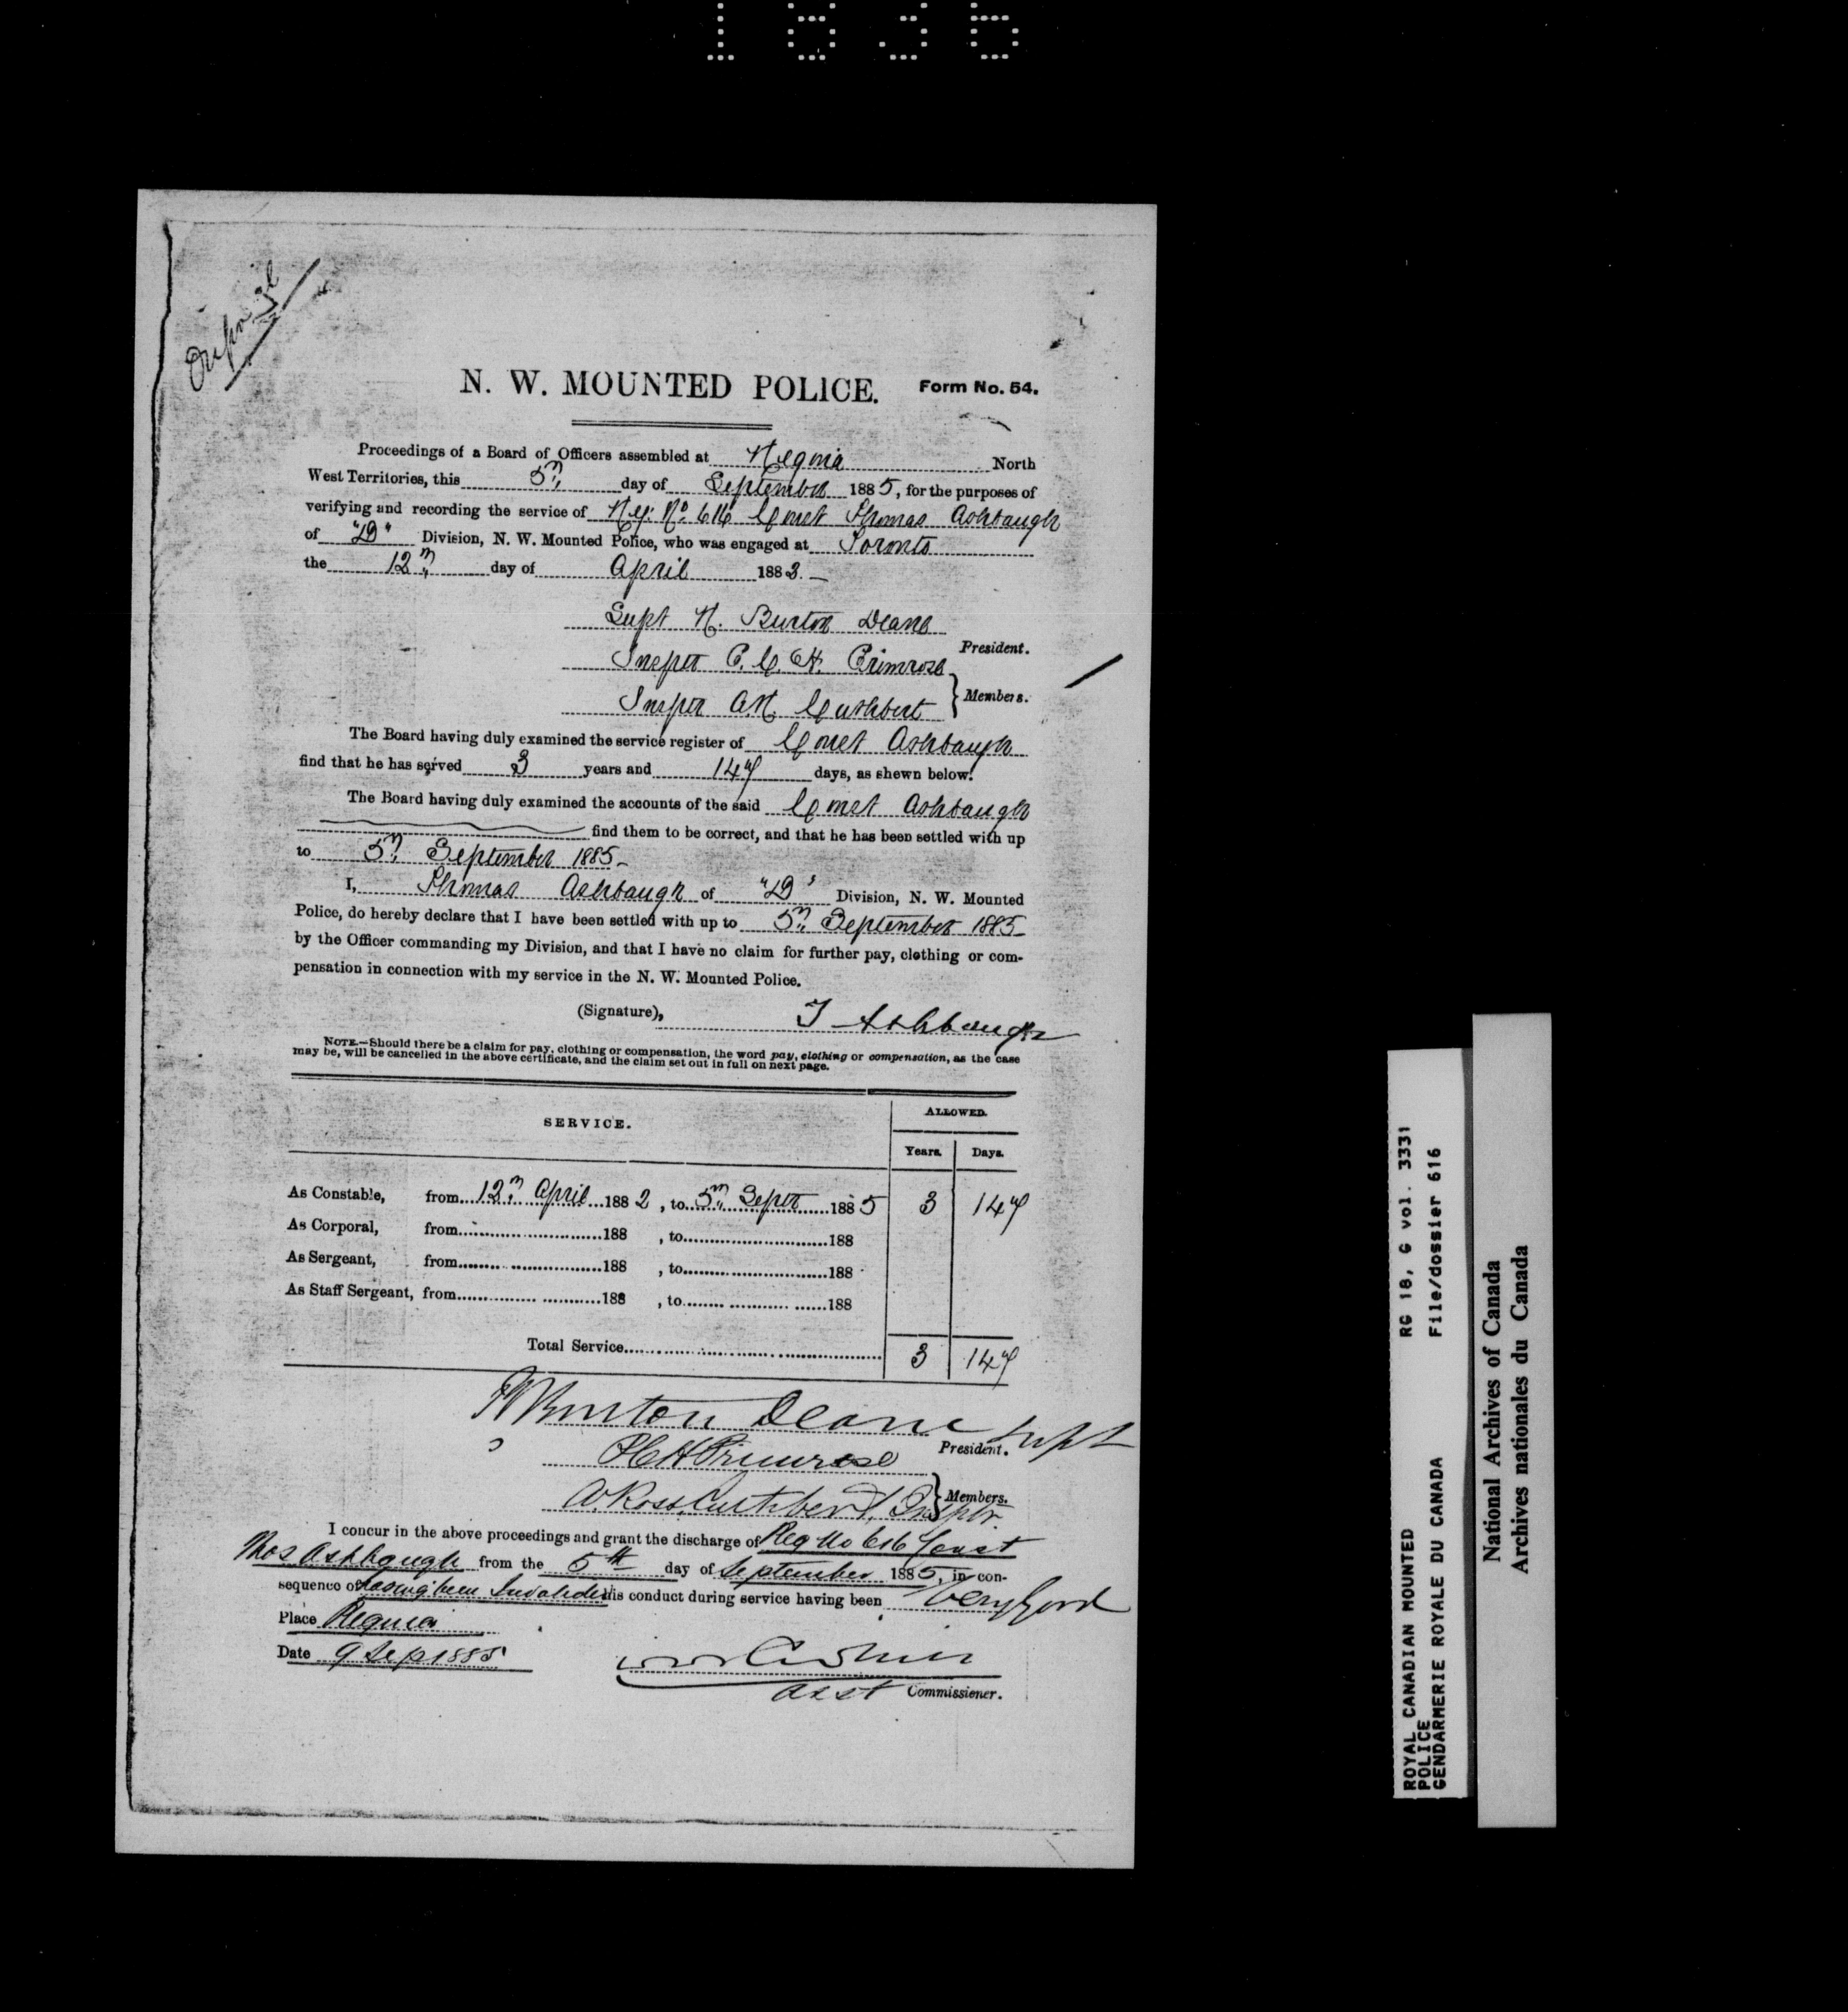 1836
Original
N. W. MOUNTED POLICE. Form No. 54.
Proceedings of a Board of Officers assembled at Regina North
West Territories, this 5th day of September 1885, for the purposes of
verifying and recording the service of Reg: No. 616 Const Thomas Ashbaugh
of "D" Division, N. W. Mounted Police, who was engaged at Toronto
the 12th day of April 1883.
Supt R. Burton Deane
President.
Inspr P. C. H. Primrose
Inspr A.R. Cuthbert
Members.
The Board having duly examined the service register of Const Ashbaugh
find that he has served 3 years and 147 days, as shewn below.
The Board having duly examined the accounts of the said Const Ashbaugh
find them to be correct, and that he has been settled with up
to 5th September 1885
I, Thomas Ashbaugh of "D" Division, N. W. Mounted
Police, do hereby declare that I have been settled with up to 5th September 1885
by the Officer commanding my Division, and that I have no claim for further pay, clothing or com-
pensation in connection with my service in the N. W. Mounted Police.
(Signature), T Ashbaugh
NOTE.—Should there be a claim for pay, clothing or compensation, the word pay, clothing or compensation, as the case
may be, will be cancelled in the above certificate, and the claim set out in full on next page.
SERVICE. ALLOWED.
Years. Days.
As Constable, from 12th April 1882, to 5th Septr 1885 3 147
As Corporal, from 188 , to 188
As Sergeant, from 188 , to 188
As Staff Sergeant, from 188 , to 188
Total Service 3 147
R Burton Deane Supt
President.
PCH Primrose
A. Ross Cuthbert, Insptr.
Members.
I concur in the above proceedings and grant the discharge of Reg No 616 Const
Thos Ashbaugh from the 5th day of September 1885, in con-
sequence of having been Invalided his conduct during service having been Very Good
Place Regina
Date 9 Sep 1885
Asst Commissioner.
ROYAL CANADIAN MOUNTED RG 18, G vol. 3331
POLICE
GENDARMERIE ROYALE DU CANADA File/dossier 616
National Archives of Canada
Archives nationales du Canada